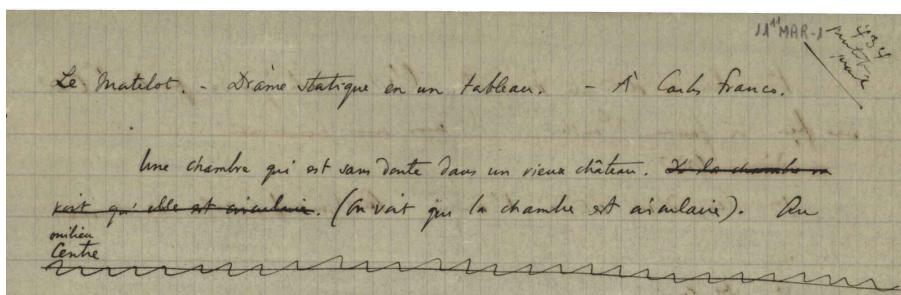 11¹¹ MAR-1
434
Le Matelot. - Drame statique en un tableau. - À Carlos Franco.
Une chambre qui est sans doute dans un vieux château. De la chambre on
voit qu'elle est circulaire. (On voit que la chambre est circulaire). Au
milieu
Centre